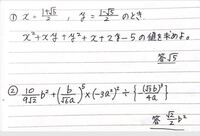 ① x = (1+√5)/2 , y = (1-√5)/2 のとき
x²+xy+y²+x+2y-5 の値を求めよ。
答 √5
② 10/(9√2) b² + (b/(√6a))³ × (-3a²)² ÷ {(√3b)³/(4a)}
答 √2/2 b²